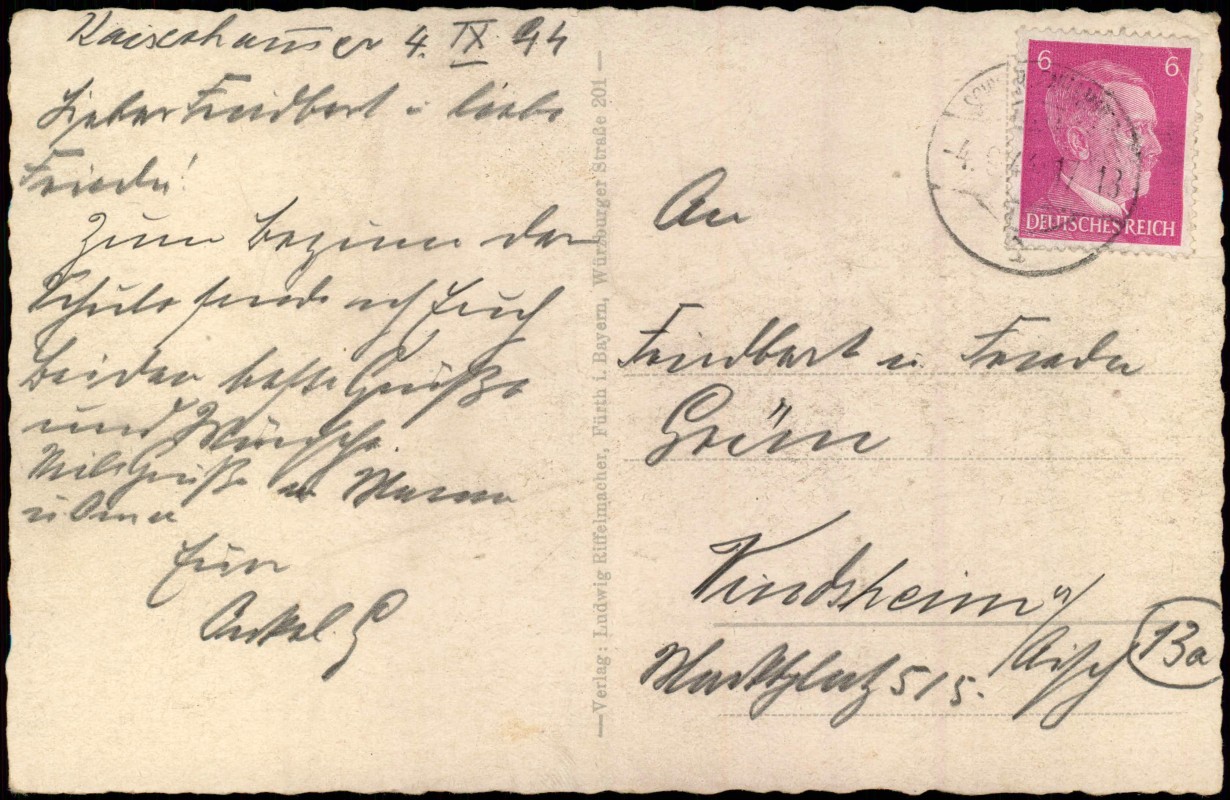 Kaiserhammer 4. IX. 44
Lieber Friedbert u. liebe
Frieda!
Zum Beginn der
Schule sende ich Euch
beiden beste Grüße
und Wünsche.
Viele Grüße an Mama
u. Oma
Euer
Onkel G
—Verlag: Ludwig Riffelmacher, Fürth i. Bayern, Würzburger Straße 201—
6 6
DEUTSCHES REICH
An
Friedbert u. Frieda
Grün
Windsheim a/
Aisch
13a
Marktplatz 515.